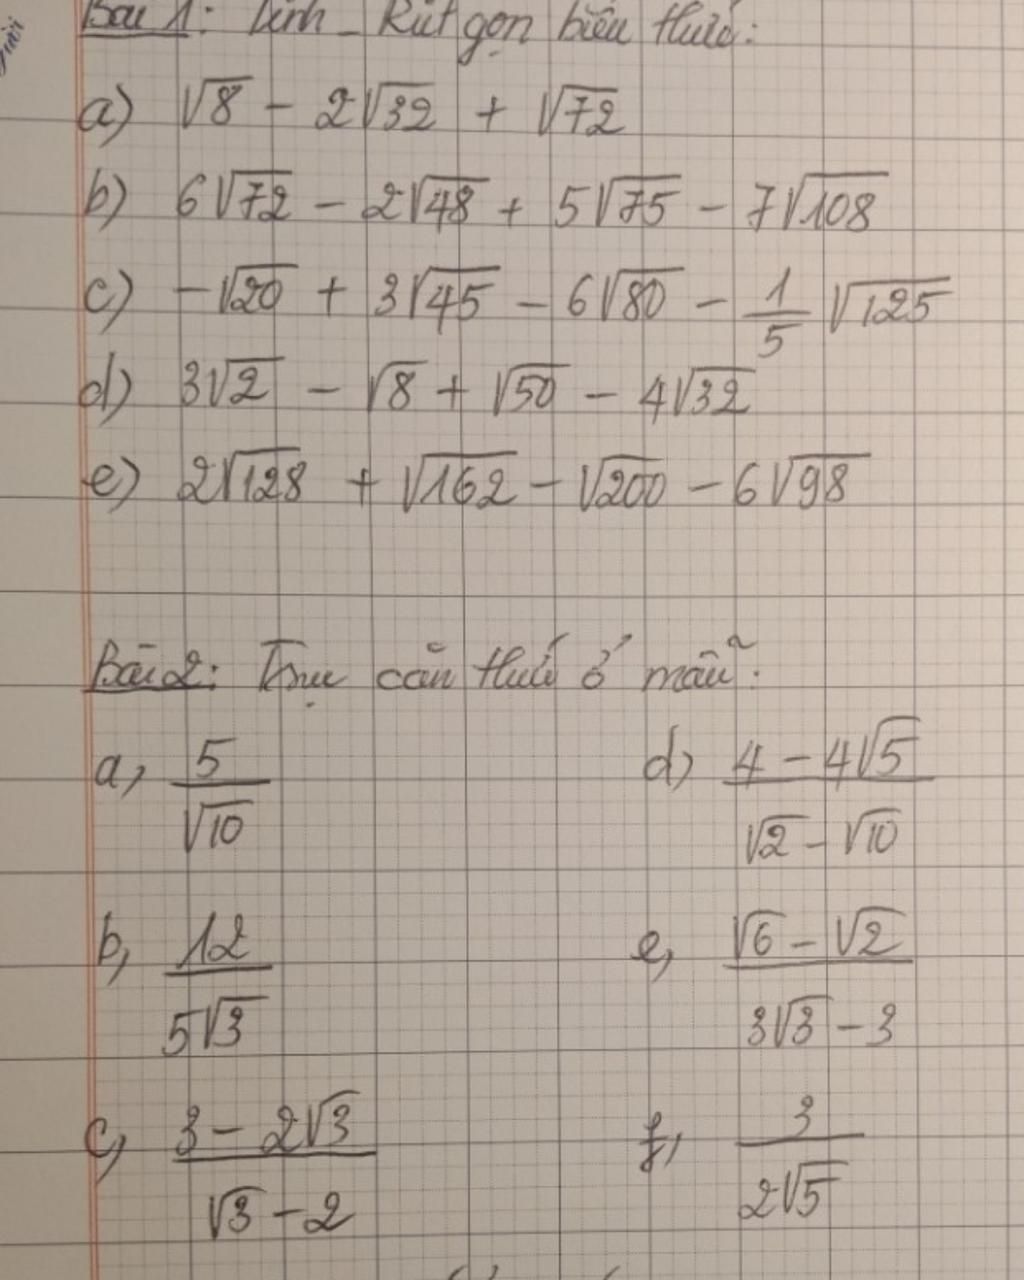 Bài 1: Tính - Rút gọn biểu thức:
a) √8 - 2√32 + √72
b) 6√72 - 2√48 + 5√75 - 7√108
c) -√20 + 3√45 - 6√80 - 1/5 √125
d) 3√2 - √8 + √50 - 4√32
e) 2√128 + √162 - √200 - 6√98
Bài 2: Trục căn thức ở mẫu:
a, 5/√10
d) (4 - 4√5)/(√2 - √10)
b, 12/(5√3)
e, (√6 - √2)/(3√3 - 3)
c, (3 - 2√3)/(√3 - 2)
f, 3/(2√5)